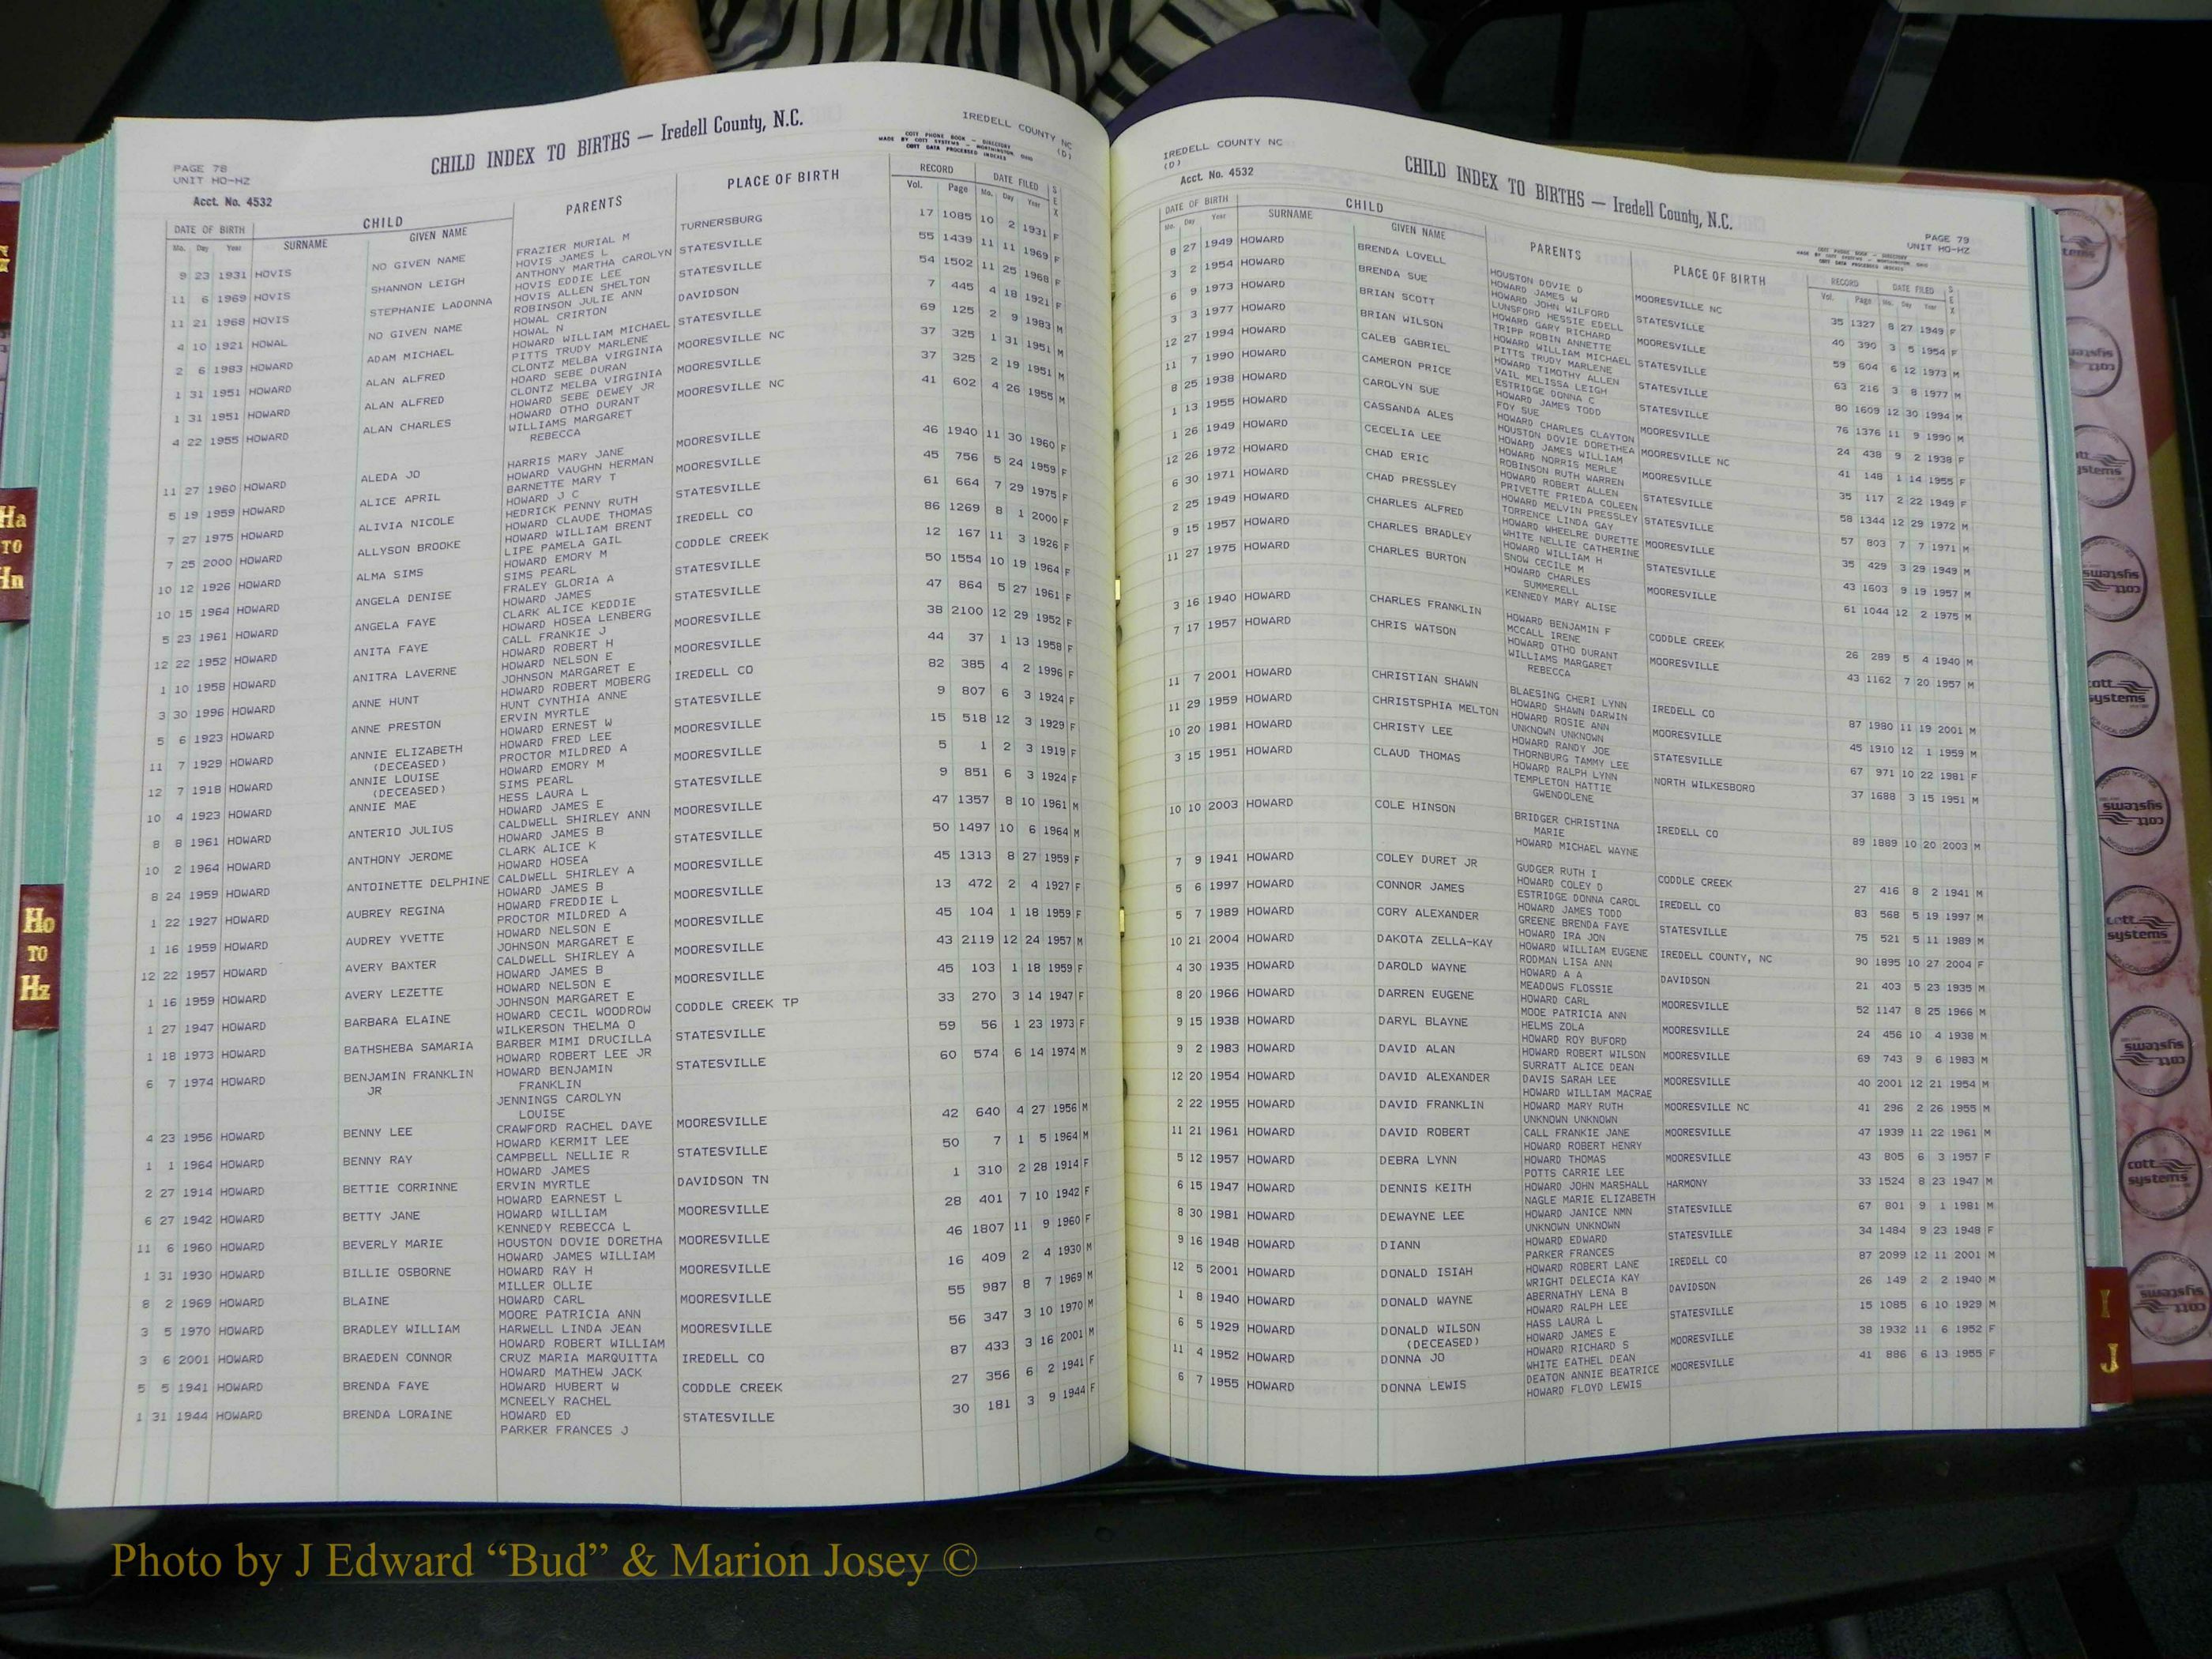 IREDELL COUNTY NC
(D)
CHILD INDEX TO BIRTHS — Iredell County, N.C.
COTT PHONE BOOK - DIRECTORY
MADE BY COTT SYSTEMS - WORTHINGTON, OHIO
COTT DATA PROCESSED INDEXES
PAGE 78
UNIT HO-HZ
Acct. No. 4532
DATE OF BIRTH CHILD PARENTS PLACE OF BIRTH RECORD DATE FILED SEX
Mo. Day Year SURNAME GIVEN NAME Vol. Page Mo. Day Year
9 23 1931 HOVIS NO GIVEN NAME FRAZIER MURIAL M TURNERSBURG 17 1085 10 2 1931 F
HOVIS JAMES L
11 6 1969 HOVIS SHANNON LEIGH ANTHONY MARTHA CAROLYN STATESVILLE 55 1439 11 11 1969 F
HOVIS EDDIE LEE
11 21 1968 HOVIS STEPHANIE LADONNA HOVIS ALLEN SHELTON STATESVILLE 54 1502 11 25 1968 F
ROBINSON JULIE ANN
4 10 1921 HOWAL NO GIVEN NAME HOWAL CRIRTON DAVIDSON 7 445 4 18 1921 F
HOWAL N
2 6 1983 HOWARD ADAM MICHAEL HOWARD WILLIAM MICHAEL STATESVILLE 69 125 2 9 1983 M
PITTS TRUDY MARLENE
1 31 1951 HOWARD ALAN ALFRED CLONTZ MELBA VIRGINIA MOORESVILLE NC 37 325 1 31 1951 M
HOARD SEBE DURAN
1 31 1951 HOWARD ALAN ALFRED CLONTZ MELBA VIRGINIA MOORESVILLE 37 325 2 19 1951 M
HOWARD SEBE DEWEY JR
4 22 1955 HOWARD ALAN CHARLES HOWARD OTHO DURANT MOORESVILLE NC 41 602 4 26 1955 M
WILLIAMS MARGARET
REBECCA
11 27 1960 HOWARD ALEDA JO HARRIS MARY JANE MOORESVILLE 46 1940 11 30 1960 F
HOWARD VAUGHN HERMAN
5 19 1959 HOWARD ALICE APRIL BARNETTE MARY T MOORESVILLE 45 756 5 24 1959 F
HOWARD J C
7 27 1975 HOWARD ALIVIA NICOLE HEDRICK PENNY RUTH STATESVILLE 61 664 7 29 1975 F
HOWARD CLAUDE THOMAS
7 25 2000 HOWARD ALLYSON BROOKE HOWARD WILLIAM BRENT IREDELL CO 86 1269 8 1 2000 F
LIPE PAMELA GAIL
10 12 1926 HOWARD ALMA SIMS HOWARD EMORY M CODDLE CREEK 12 167 11 3 1926 F
SIMS PEARL
10 15 1964 HOWARD ANGELA DENISE FRALEY GLORIA A STATESVILLE 50 1554 10 19 1964 F
HOWARD JAMES
5 23 1961 HOWARD ANGELA FAYE CLARK ALICE KEDDIE STATESVILLE 47 864 5 27 1961 F
HOWARD HOSEA LENBERG
12 22 1952 HOWARD ANITA FAYE CALL FRANKIE J MOORESVILLE 38 2100 12 29 1952 F
HOWARD ROBERT H
1 10 1958 HOWARD ANITRA LAVERNE HOWARD NELSON E MOORESVILLE 44 37 1 13 1958 F
JOHNSON MARGARET E
3 30 1996 HOWARD ANNE HUNT HOWARD ROBERT MOBERG IREDELL CO 82 385 4 2 1996 F
HUNT CYNTHIA ANNE
5 6 1923 HOWARD ANNE PRESTON ERVIN MYRTLE STATESVILLE 9 807 6 3 1924 F
HOWARD ERNEST W
11 7 1929 HOWARD ANNIE ELIZABETH HOWARD FRED LEE MOORESVILLE 15 518 12 3 1929 F
(DECEASED) PROCTOR MILDRED A
12 7 1918 HOWARD ANNIE LOUISE HOWARD EMORY M MOORESVILLE 5 1 2 3 1919 F
(DECEASED) SIMS PEARL
10 4 1923 HOWARD ANNIE MAE HESS LAURA L STATESVILLE 9 851 6 3 1924 F
HOWARD JAMES E
8 8 1961 HOWARD ANTERIO JULIUS CALDWELL SHIRLEY ANN MOORESVILLE 47 1357 8 10 1961 M
HOWARD JAMES B
10 2 1964 HOWARD ANTHONY JEROME CLARK ALICE K STATESVILLE 50 1497 10 6 1964 M
HOWARD HOSEA
8 24 1959 HOWARD ANTOINETTE DELPHINE CALDWELL SHIRLEY A MOORESVILLE 45 1313 8 27 1959 F
HOWARD JAMES B
1 22 1927 HOWARD AUBREY REGINA HOWARD FREDDIE L MOORESVILLE 13 472 2 4 1927 F
PROCTOR MILDRED A
1 16 1959 HOWARD AUDREY YVETTE HOWARD NELSON E MOORESVILLE 45 104 1 18 1959 F
JOHNSON MARGARET E
12 22 1957 HOWARD AVERY BAXTER CALDWELL SHIRLEY A MOORESVILLE 43 2119 12 24 1957 M
HOWARD JAMES B
1 16 1959 HOWARD AVERY LEZETTE HOWARD NELSON E MOORESVILLE 45 103 1 18 1959 F
JOHNSON MARGARET E
1 27 1947 HOWARD BARBARA ELAINE HOWARD CECIL WOODROW CODDLE CREEK TP 33 270 3 14 1947 F
WILKERSON THELMA O
1 18 1973 HOWARD BATHSHEBA SAMARIA BARBER MIMI DRUCILLA STATESVILLE 59 56 1 23 1973 F
HOWARD ROBERT LEE JR
6 7 1974 HOWARD BENJAMIN FRANKLIN HOWARD BENJAMIN STATESVILLE 60 574 6 14 1974 M
JR FRANKLIN
JENNINGS CAROLYN
LOUISE
4 23 1956 HOWARD BENNY LEE CRAWFORD RACHEL DAYE MOORESVILLE 42 640 4 27 1956 M
HOWARD KERMIT LEE
1 1 1964 HOWARD BENNY RAY CAMPBELL NELLIE R STATESVILLE 50 7 1 5 1964 M
HOWARD JAMES
2 27 1914 HOWARD BETTIE CORRINNE ERVIN MYRTLE DAVIDSON TN 1 310 2 28 1914 F
HOWARD EARNEST L
6 27 1942 HOWARD BETTY JANE HOWARD WILLIAM MOORESVILLE 28 401 7 10 1942 F
KENNEDY REBECCA L
11 6 1960 HOWARD BEVERLY MARIE HOUSTON DOVIE DORETHA MOORESVILLE 46 1807 11 9 1960 F
HOWARD JAMES WILLIAM
1 31 1930 HOWARD BILLIE OSBORNE HOWARD RAY H MOORESVILLE 16 409 2 4 1930 M
MILLER OLLIE
8 2 1969 HOWARD BLAINE HOWARD CARL MOORESVILLE 55 987 8 7 1969 M
MOORE PATRICIA ANN
3 5 1970 HOWARD BRADLEY WILLIAM HARWELL LINDA JEAN MOORESVILLE 56 347 3 10 1970 M
HOWARD ROBERT WILLIAM
3 6 2001 HOWARD BRAEDEN CONNOR CRUZ MARIA MARQUITTA IREDELL CO 87 433 3 16 2001 M
HOWARD MATHEW JACK
5 5 1941 HOWARD BRENDA FAYE HOWARD HUBERT W CODDLE CREEK 27 356 6 2 1941 F
MCNEELY RACHEL
1 31 1944 HOWARD BRENDA LORAINE HOWARD ED STATESVILLE 30 181 3 9 1944 F
PARKER FRANCES J
IREDELL COUNTY NC
(D)
Acct. No. 4532
CHILD INDEX TO BIRTHS — Iredell County, N.C.
PAGE 79
UNIT HO-HZ
DATE OF BIRTH CHILD PARENTS PLACE OF BIRTH RECORD DATE FILED SEX
Mo. Day Year SURNAME GIVEN NAME Vol. Page Mo. Day Year
8 27 1949 HOWARD BRENDA LOVELL HOUSTON DOVIE D MOORESVILLE NC 35 1327 8 27 1949 F
HOWARD JAMES W
3 2 1954 HOWARD BRENDA SUE HOWARD JOHN WILFORD STATESVILLE 40 390 3 5 1954 F
LUNSFORD HESSIE EDELL
6 9 1973 HOWARD BRIAN SCOTT HOWARD GARY RICHARD MOORESVILLE 59 604 6 12 1973 M
TRIPP ROBIN ANNETTE
3 3 1977 HOWARD BRIAN WILSON HOWARD WILLIAM MICHAEL STATESVILLE 63 216 3 8 1977 M
PITTS TRUDY MARLENE
12 27 1994 HOWARD CALEB GABRIEL HOWARD TIMOTHY ALLEN STATESVILLE 80 1609 12 30 1994 M
VAIL MELISSA LEIGH
11 7 1990 HOWARD CAMERON PRICE ESTRIDGE DONNA C STATESVILLE 76 1376 11 9 1990 M
HOWARD JAMES TODD
8 25 1938 HOWARD CAROLYN SUE FOY SUE MOORESVILLE 24 438 9 2 1938 F
HOWARD CHARLES CLAYTON
1 13 1955 HOWARD CASSANDA ALES HOUSTON DOVIE DORETHEA MOORESVILLE NC 41 148 1 14 1955 F
HOWARD JAMES WILLIAM
1 26 1949 HOWARD CECELIA LEE HOWARD NORRIS MERLE MOORESVILLE 35 117 2 22 1949 F
ROBINSON RUTH WARREN
12 26 1972 HOWARD CHAD ERIC HOWARD ROBERT ALLEN STATESVILLE 58 1344 12 29 1972 M
PRIVETTE FRIEDA COLEEN
6 30 1971 HOWARD CHAD PRESSLEY HOWARD MELVIN PRESSLEY STATESVILLE 57 803 7 7 1971 M
TORRENCE LINDA GAY
2 25 1949 HOWARD CHARLES ALFRED HOWARD WHEELRE DURETTE MOORESVILLE 35 429 3 29 1949 M
WHITE NELLIE CATHERINE
9 15 1957 HOWARD CHARLES BRADLEY HOWARD WILLIAM H STATESVILLE 43 1603 9 19 1957 M
SNOW CECILE M
11 27 1975 HOWARD CHARLES BURTON HOWARD CHARLES MOORESVILLE 61 1044 12 2 1975 M
SUMMERELL
KENNEDY MARY ALISE
3 16 1940 HOWARD CHARLES FRANKLIN HOWARD BENJAMIN F CODDLE CREEK 26 289 5 4 1940 M
MCCALL IRENE
7 17 1957 HOWARD CHRIS WATSON HOWARD OTHO DURANT MOORESVILLE 43 1162 7 20 1957 M
WILLIAMS MARGARET
REBECCA
11 7 2001 HOWARD CHRISTIAN SHAWN BLAESING CHERI LYNN IREDELL CO 87 1980 11 19 2001 M
HOWARD SHAWN DARWIN
11 29 1959 HOWARD CHRISTSPHIA MELTON HOWARD ROSIE ANN MOORESVILLE 45 1910 12 1 1959 M
UNKNOWN UNKNOWN
10 20 1981 HOWARD CHRISTY LEE HOWARD RANDY JOE STATESVILLE 67 971 10 22 1981 F
THORNBURG TAMMY LEE
3 15 1951 HOWARD CLAUD THOMAS HOWARD RALPH LYNN NORTH WILKESBORO 37 1688 3 15 1951 M
TEMPLETON HATTIE
GWENDOLENE
10 10 2003 HOWARD COLE HINSON BRIDGER CHRISTINA IREDELL CO 89 1889 10 20 2003 M
MARIE
HOWARD MICHAEL WAYNE
7 9 1941 HOWARD COLEY DURET JR GUDGER RUTH I CODDLE CREEK 27 416 8 2 1941 M
HOWARD COLEY D
5 6 1997 HOWARD CONNOR JAMES ESTRIDGE DONNA CAROL IREDELL CO 83 568 5 19 1997 M
HOWARD JAMES TODD
5 7 1989 HOWARD CORY ALEXANDER GREENE BRENDA FAYE STATESVILLE 75 521 5 11 1989 M
HOWARD IRA JON
10 21 2004 HOWARD DAKOTA ZELLA-KAY HOWARD WILLIAM EUGENE IREDELL COUNTY, NC 90 1895 10 27 2004 F
RODMAN LISA ANN
4 30 1935 HOWARD DAROLD WAYNE HOWARD A A DAVIDSON 21 403 5 23 1935 M
MEADOWS FLOSSIE
8 20 1966 HOWARD DARREN EUGENE HOWARD CARL MOORESVILLE 52 1147 8 25 1966 M
MOOE PATRICIA ANN
9 15 1938 HOWARD DARYL BLAYNE HELMS ZOLA MOORESVILLE 24 456 10 4 1938 M
HOWARD ROY BUFORD
9 2 1983 HOWARD DAVID ALAN HOWARD ROBERT WILSON MOORESVILLE 69 743 9 6 1983 M
SURRATT ALICE DEAN
12 20 1954 HOWARD DAVID ALEXANDER DAVIS SARAH LEE MOORESVILLE 40 2001 12 21 1954 M
HOWARD WILLIAM MACRAE
2 22 1955 HOWARD DAVID FRANKLIN HOWARD MARY RUTH MOORESVILLE NC 41 296 2 26 1955 M
UNKNOWN UNKNOWN
11 21 1961 HOWARD DAVID ROBERT CALL FRANKIE JANE MOORESVILLE 47 1939 11 22 1961 M
HOWARD ROBERT HENRY
5 12 1957 HOWARD DEBRA LYNN HOWARD THOMAS MOORESVILLE 43 805 6 3 1957 F
POTTS CARRIE LEE
6 15 1947 HOWARD DENNIS KEITH HOWARD JOHN MARSHALL HARMONY 33 1524 8 23 1947 M
NAGLE MARIE ELIZABETH
8 30 1981 HOWARD DEWAYNE LEE HOWARD JANICE NMN STATESVILLE 67 801 9 1 1981 M
UNKNOWN UNKNOWN
9 16 1948 HOWARD DIANN HOWARD EDWARD STATESVILLE 34 1484 9 23 1948 F
PARKER FRANCES
12 5 2001 HOWARD DONALD ISIAH HOWARD ROBERT LANE IREDELL CO 87 2099 12 11 2001 M
WRIGHT DELECIA KAY
1 8 1940 HOWARD DONALD WAYNE ABERNATHY LENA B DAVIDSON 26 149 2 2 1940 M
HOWARD RALPH LEE
6 5 1929 HOWARD DONALD WILSON HASS LAURA L STATESVILLE 15 1085 6 10 1929 M
(DECEASED) HOWARD JAMES E
11 4 1952 HOWARD DONNA JO HOWARD RICHARD S MOORESVILLE 38 1932 11 6 1952 F
WHITE EATHEL DEAN
6 7 1955 HOWARD DONNA LEWIS DEATON ANNIE BEATRICE MOORESVILLE 41 886 6 13 1955 F
HOWARD FLOYD LEWIS
Ha
TO
Hn
Ho
TO
Hz
I
J
cott
systems
Photo by J Edward “Bud” & Marion Josey ©